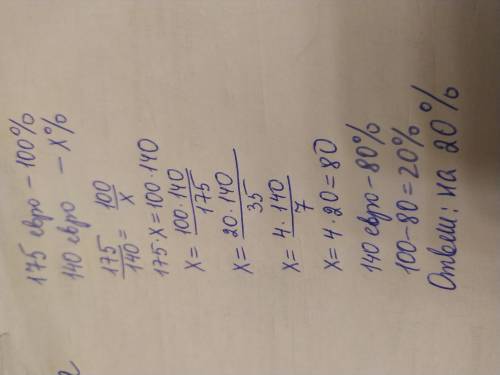 175 евро - 100%
140 евро - x%
175/140 = 100/x
175·x=100·140
x= 100·140/175
x= 20·140/35
x= 4·140/7
x= 4·20=80
140 евро-80%
100-80=20%
Ответ: на 20%